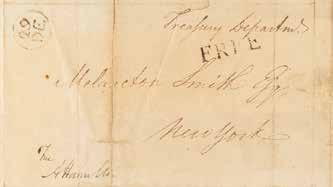 29
DE
Treasury Departmt
FREE
Melancton Smith Esqr
New York